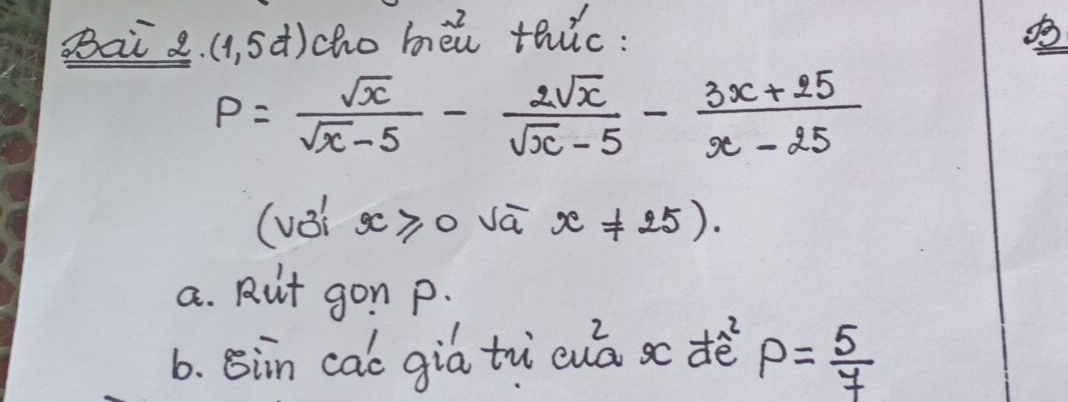 Bài 2.(1,5đ) cho biểu thức:
P = \frac{\sqrt{x}}{\sqrt{x}-5} - \frac{2\sqrt{x}}{\sqrt{x}-5} - \frac{3x+25}{x-25}
(với x ⩾ 0 và x ≠ 25).
a. Rút gọn P.
b. Tìm các giá trị của x để P = \frac{5}{7}